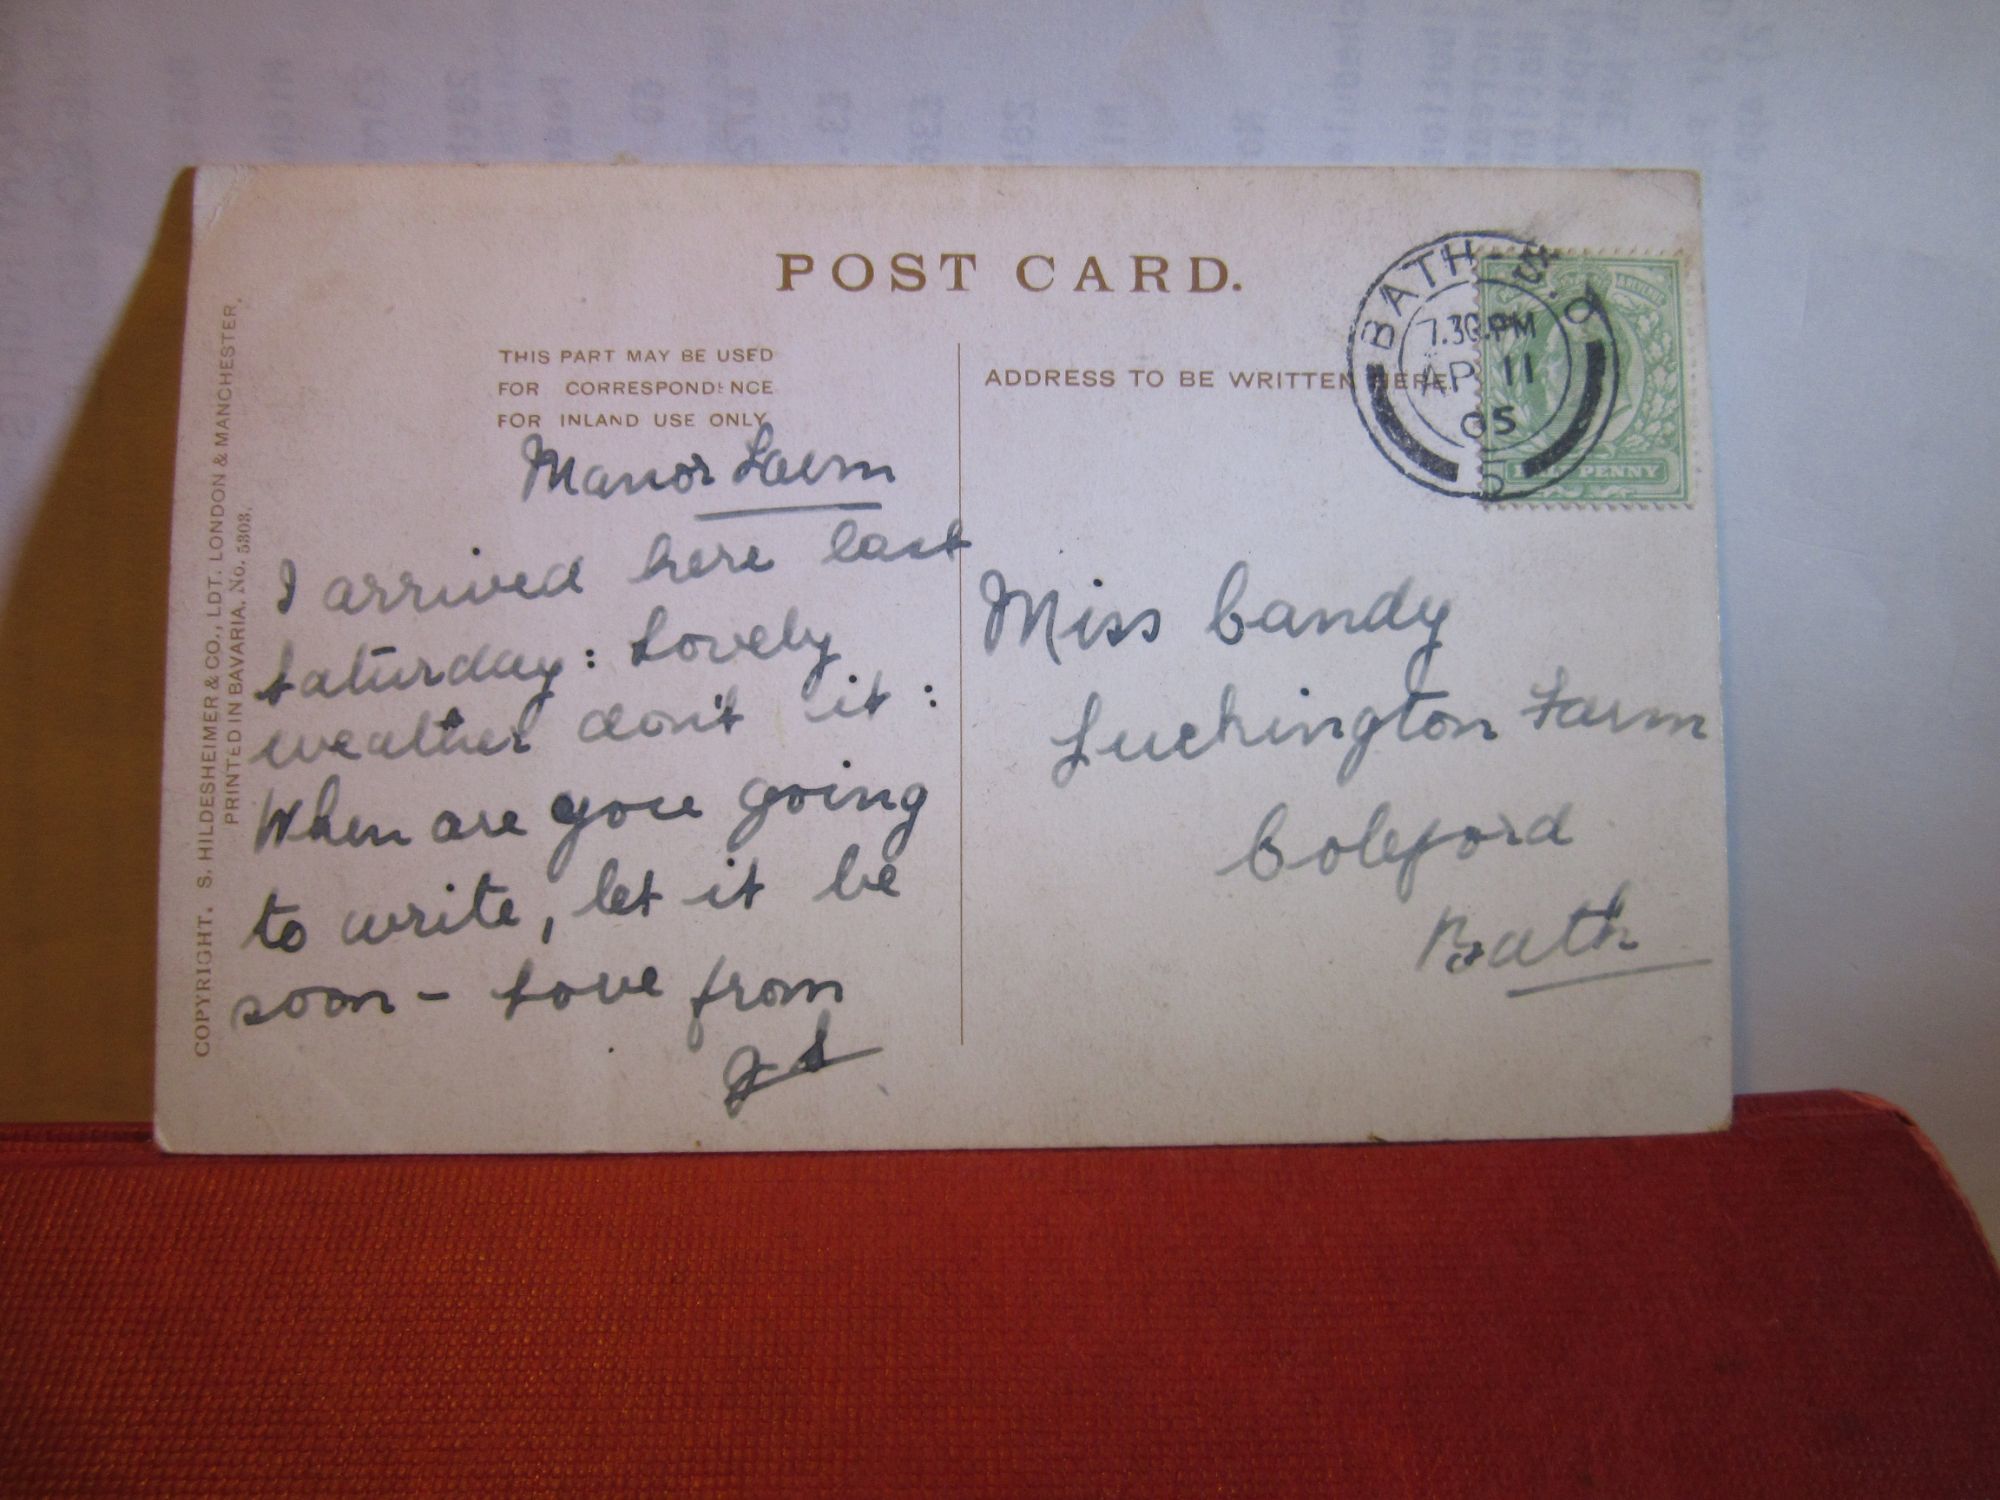 POST CARD.
THIS PART MAY BE USED
FOR CORRESPONDENCE
FOR INLAND USE ONLY
ADDRESS TO BE WRITTEN HERE
BATH
7.30.PM
AP 11
05
HALFPENNY
Manor Farm
I arrived here last
Saturday: Lovely
weather don't it:
When are you going
to write, let it be
soon - Love from
Miss Candy
Luckington Farm
Coleford
Bath
COPYRIGHT. S. HILDESHEIMER & CO., LDT. LONDON & MANCHESTER.
PRINTED IN BAVARIA. No. 5303.